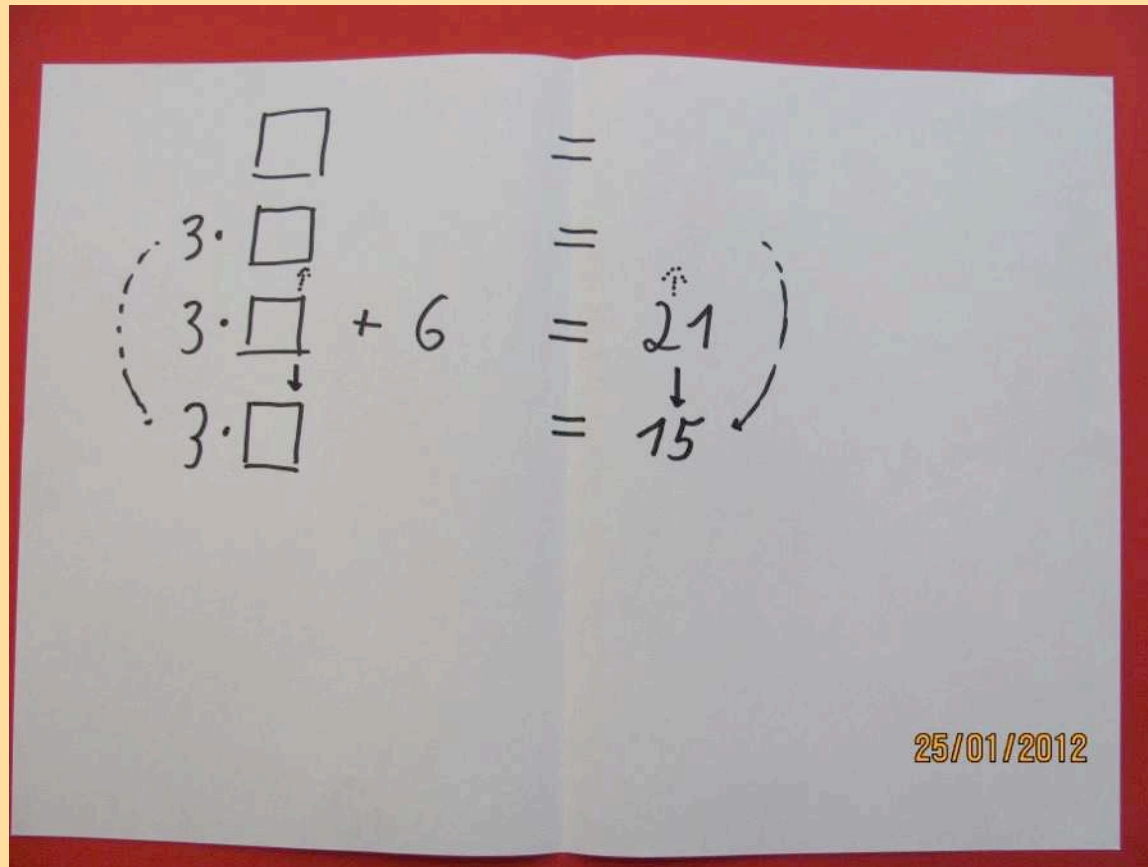 □ =
3· □ =
3· □ + 6 = 21
3· □ = 15
25/01/2012